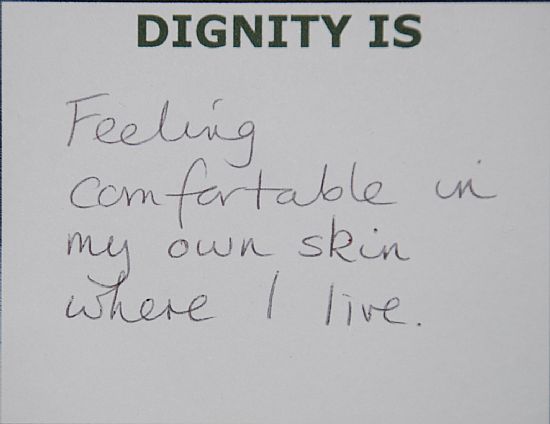 DIGNITY IS
Feeling
comfortable in
my own skin
where I live.